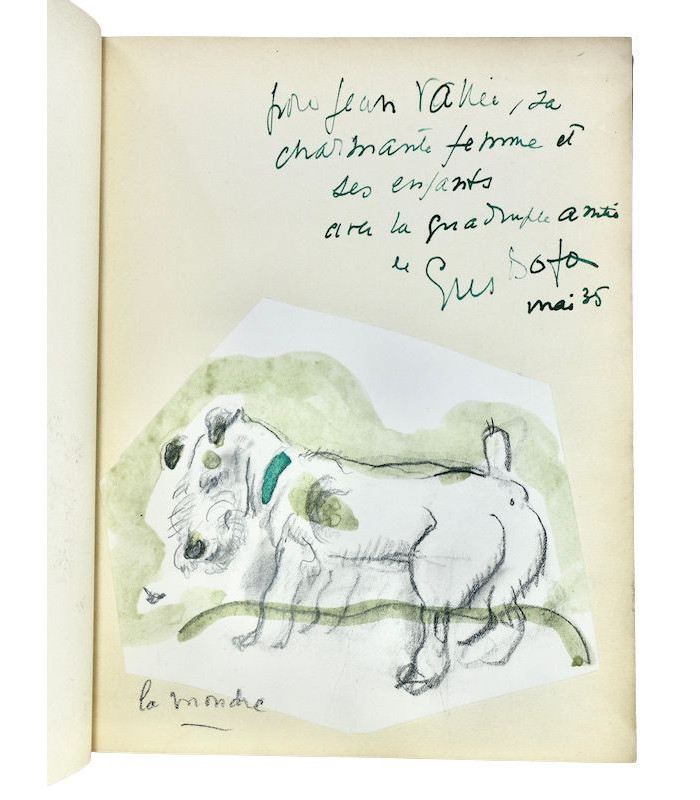 pour Jean Vallée, sa
charmante femme et
ses enfants
avec la quadruple amitié
de Gus Bofa
mai 35
la mondre